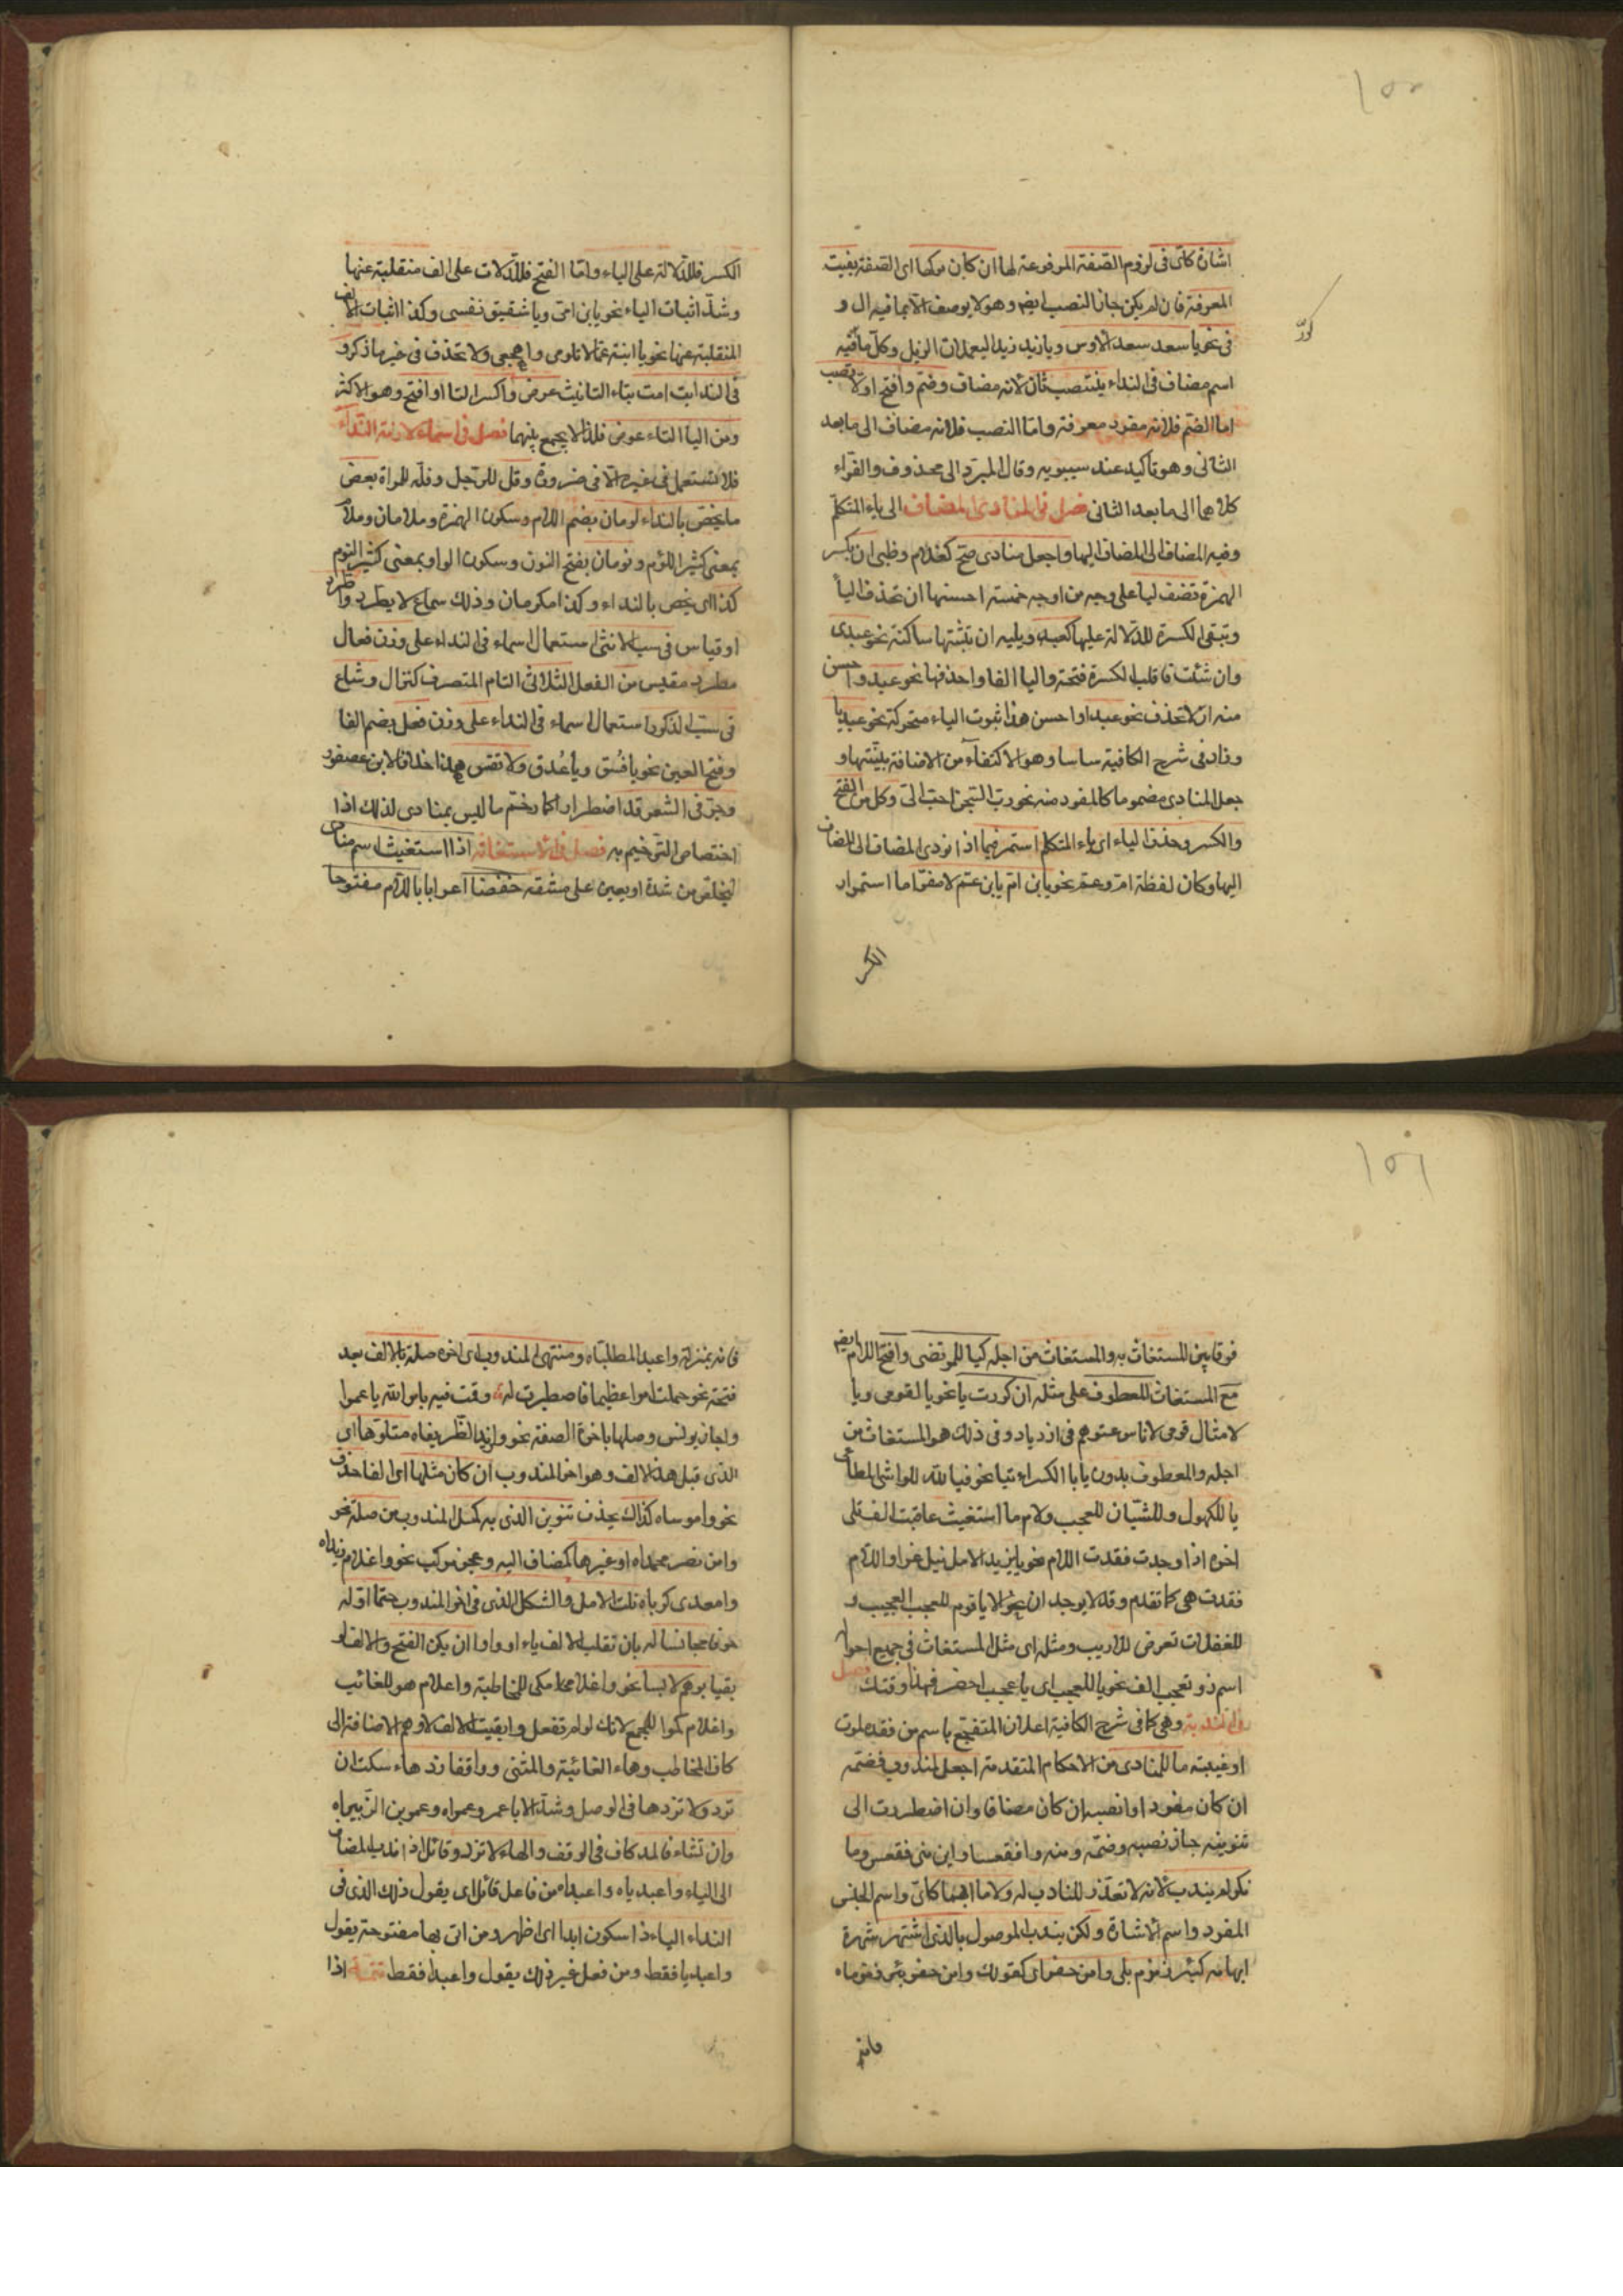 ١٥٥
اشارة كاى فى لزوم الصفة المرفوعة لها ان كان تركها اى الصفة يفيت
المعرفة فان لم يكن جاز النصب ايضم وهو لا يوصف الا بما فيه ال و
فى نحو يا سعد سعد الاوس ويا زيد زيد اليعملات الذبل وكل ما فيه
كرر
اسم مضاف فى النداء ينتصب ثان لانه مضاف وضم وافتح اولا تصب
اما الضم فلانه مفرد معرفة واما النصب فلانه مضاف الى ما بعد
الثانى وهو تاكيد عند سيبويه وقال المبرد الى محذوف والفراء
كلاهما الى ما بعد الثانى فصل فى المنادى المضاف الى ياء المتكلم
وفيه المضاف الى المضاف اليها واجعل منادى صح كغلام وظبى ان بكسر
الهمزة تضف ليا على وجه من اوجه خمسة احسنها ان تحذف اليأ
وتبقى الكسرة للدلالة عليها كعبد ويليه ان تثبتها ساكنة نحو عبدى
وان شئت فاقلب الكسرة فتحة واليا الفا واحذفها نحو عبد واحسن
منه ان لا تحذف نحو عبدا واحسن هذا ثبوت الياء متحركة نحو عبديا
وزاد فى شرح الكافية سادسا وهو الاكتفاء من الاضافة بنيتها و
جعل المنادى مضموما كالمفرد منه نحو رب السجن احب الى وكل من الفتح
والكسر وحذف الياء اى ياء المتكلم استمر فيما اذا نودى المضاف الى المضاف
اليها وكان لفظة ام وعم نحو يا بن ام يا بن عم لا مفر اما استمرار
الكسر
الكسر فللدلالة على الياء واما الفتح فللدلالة على الف منقلبة عنها
وشذ اثبات الياء نحو يا بن امى ويا شقيق نفسى وكذا اثبات الالف
المنقلبة عنها نحو يا ابنة عما لا تلومى واهجعى ولا تحذف فى غير ما ذكر و
فى الندا ابت امت بتاء التانيث عرض واكسر التا او افتح وهو الاكثر
ومن اليا التاء عوض فلذا لا يجمع بينهما فصل فى اسماء لازمت النداء
فلا تستعمل فى غيره الا فى ضرورة وقل للرجل وفلة للمراة بعض
ما يخص بالنداء لومان بضم اللام وسكون الهمزة وملامان وملام
بمعنى كثير اللؤم ونومان بفتح النون وسكون الواو بمعنى كثير النوم
كذا اى يخص بالنداء وكذا مكرمان وذلك سماع لا يطرد واطرد
او قياس فى سب الانثى استعمال اسماء فى النداء على وزن فعال
مطرد مقيس من الفعل الثلاثى التام المتصرف كنزال وشاع
فى سب الذكور استعمال اسماء فى النداء على وزن فعل بضم الفا
وفتح العين نحو يا فسق ويا غدر ولا تقس هذا خلافا لابن عصفور
وجر فى الشعر فل اضطرارا كما رخم ما ليس بمنادى لذلك اذا
اختصاص الترخيم به فصل فى الاستغاثة اذا استغيث اسم منادى
ليخلص من شدة او يعين على مشقة خفضا اعرابا باللام مفتوحا
١٥٦
فرقا بين المستغاث به والمستغاث من اجله كيا للمرتضى وافتح اللام ايضم
مع المستغاث المعطوف على مثله ان كررت يا نحو يا لقومى ويا
لامثال قومى لاناس عتوهم فى ازدياد وفى ذلك هو المستغاث من
اجله والمعطوف بدون يا با الكسر ائتيا نحو فيا لله للواشى المطاع
يا للكهول وللشبان للعجب ولام ما استغيث عاقبت الف تلى
اخره اذا وجدت فقدت اللام نحو يا يزيدا لامل نيل عز او اللام
فقدت هى كما تقدم وقد لا يوجدان نحو الا يا قوم للعجب العجيب و
للغفلات تعرض للاريب ومثله اى مثل المستغاث فى جميع احواله
اسم ذو تعجب الف نحو يا للعجب اى يا عجب احضر فهذا وقتك فصل
فى الندبة وهى كما فى شرح الكافية اعلان المتفجع باسم من فقده لموت
او غيبة ما للمنادى من الاحكام المتقدمة اجعل لمندوب فضمه
ان كان مفردا وانصبه ان كان مضافا وان اضطررت الى
تنوينه جاز نصبه وضمه ومنه وا فقعسا واين منى فقعس وما
نكر لم يندب لانه لا تعذر للنادب له ولا ما ابهما كاى واسم الجنس
المفرد واسم الاشارة ولكن يندب الموصول بالذى اشتهر شهرة
ابهامه كبئر زمزم يلى وا من حفر اى كقولك وا من حفر بئر زمزماه
فانه
فانه بمنزلة وا عبد المطلباه ومنتهى المندوب اى اخره صلة بالالف بعد
فتحة نحو حملت امرا عظيما فاصطبرت له وقمت فيه بامر الله يا عمرا
واجاز يونس وصلها باخر الصفة نحو وا زيد الظريفاه متلوها اى
الذى قبل هذا الالف وهو اخر المندوب ان كان مثلها اى الفا حذف
نحو وا موساه كذاك يحذف تنوين الذى به كمل المندوب من صلة نحو
وا من نصر محمداه او غيرها كمضاف اليه وعجز مركب نحو وا غلام زيداه
وا معدى كرباه نلت الامل والشكل الذى فى اخر المندوب حتما اوله
حرفا مجانسا له بان تقلب الالف ياء او واوا ان يكن الفتح والالف لو
بقيا بوهم لابسا نحو وا غلامكى للمخاطبة وا غلامهو للغائب
وا غلامكموا للجمع لانك لو لم تفعل وابقيت الالف لاوهم الاضافة الى
كاف المخاطب وهاء الغائبة والمثنى وواقفا زد هاء سكت ان
ترد ولا تزدها فى الوصل وشذ الا يا عمرو عمراه وعمرو بن الزبيراه
وان تشاء فالمد كاف فى الوقف والهاء لا تزد وقائل اذا ندب المضاف
الى الياء وا عبدياه وا عبداه من فاعل قائل اى يقول ذلك الذى فى
النداء الياء ذا سكون ابدا اى اظهر ومن اتى بها مفتوحة يقول
وا عبديا فقط ومن فعل غير ذلك يقول وا عبدا فقط تتمة اذا